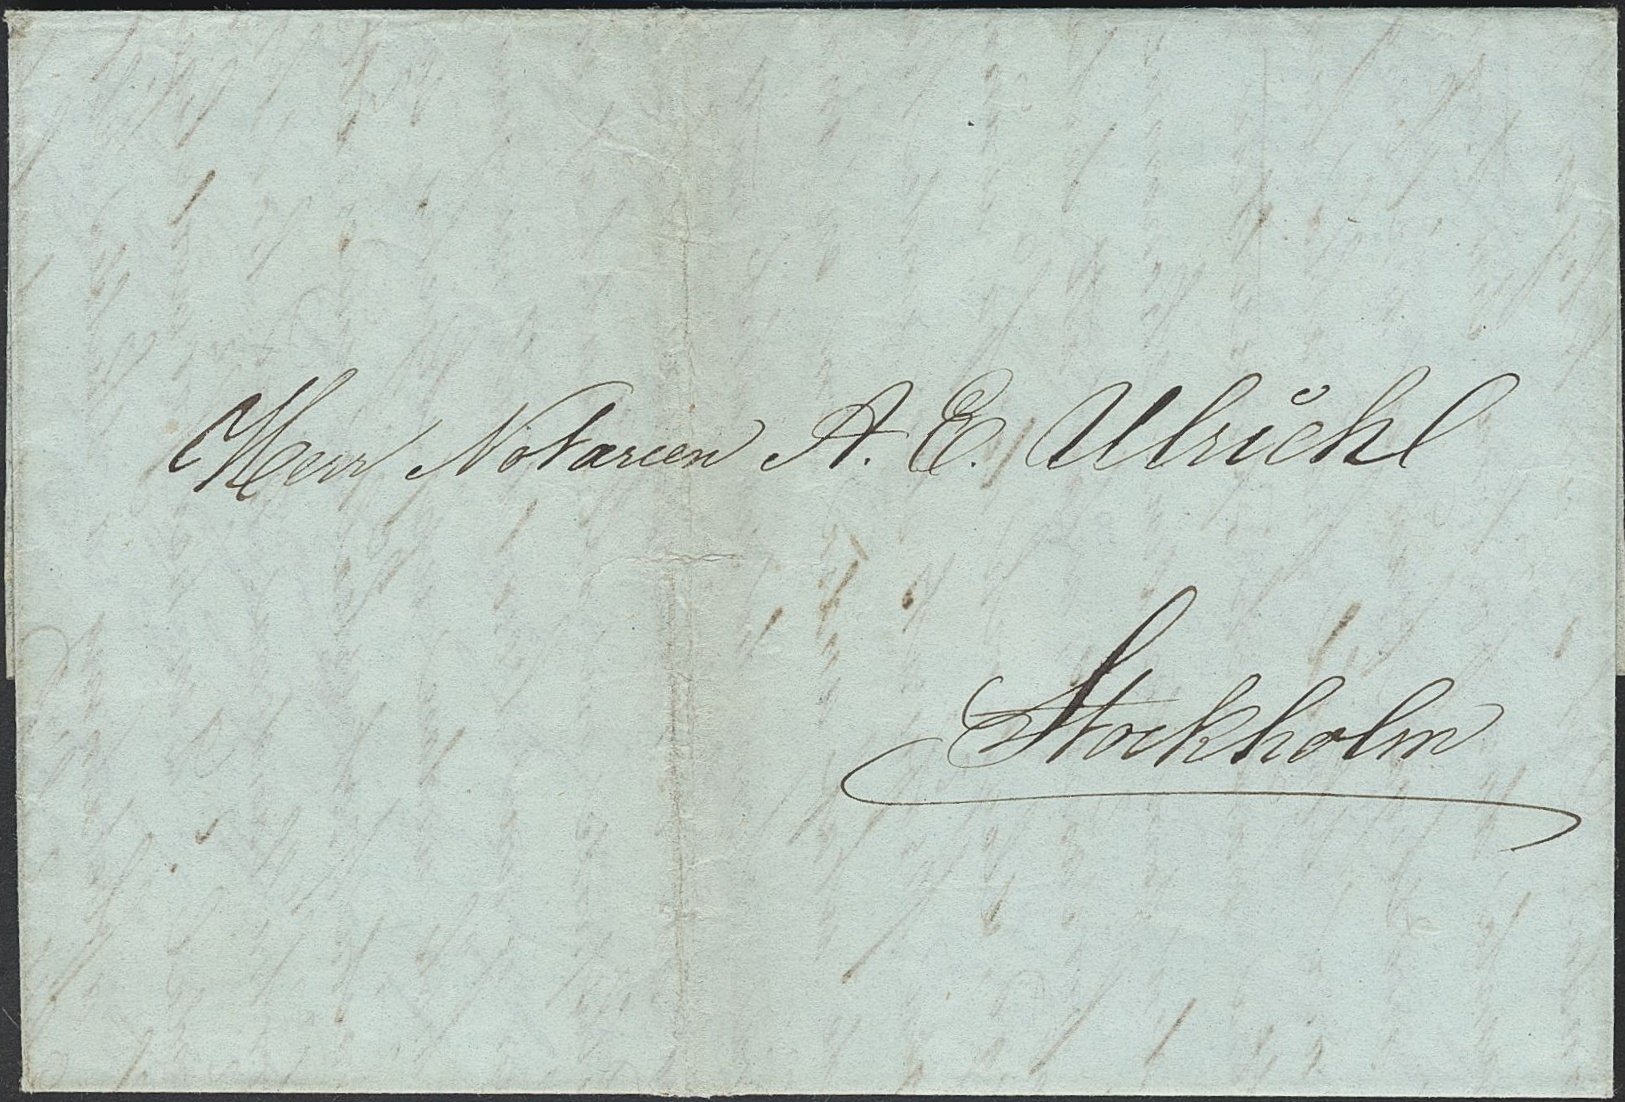 Herr Notarien A. E. Ulrichl
Stockholm